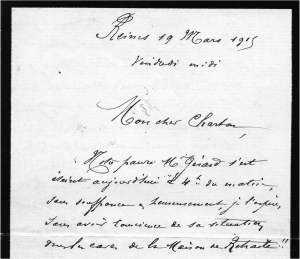 Reims 19 Mars 1915
Vendredi midi
Mon cher Charton,
Notre pauvre Mr Gérard s'est
éteint aujourd'hui à 4h. du matin,
sans souffrance, heureusement, j'espère,
sans avoir conscience de sa situation
dans les caves de la Maison de Retraite !!